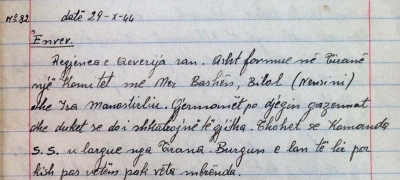 Nº 82 datë 29-X-44
Enver.
Regjenca e Qeverija ran. Asht formue në Tiranë
një Komitet me Mer Bashën, Bilal (Nensini)
dhe Isa Manastirliu. Gjermanët po djegin gazermat
dhe duket se do i shkatrojnë të gjitha. Thohet se Komanda
S.S. u largue nga Tirana. Burgun e lan të lir por
kish pas vetëm pak veta mbrenda.